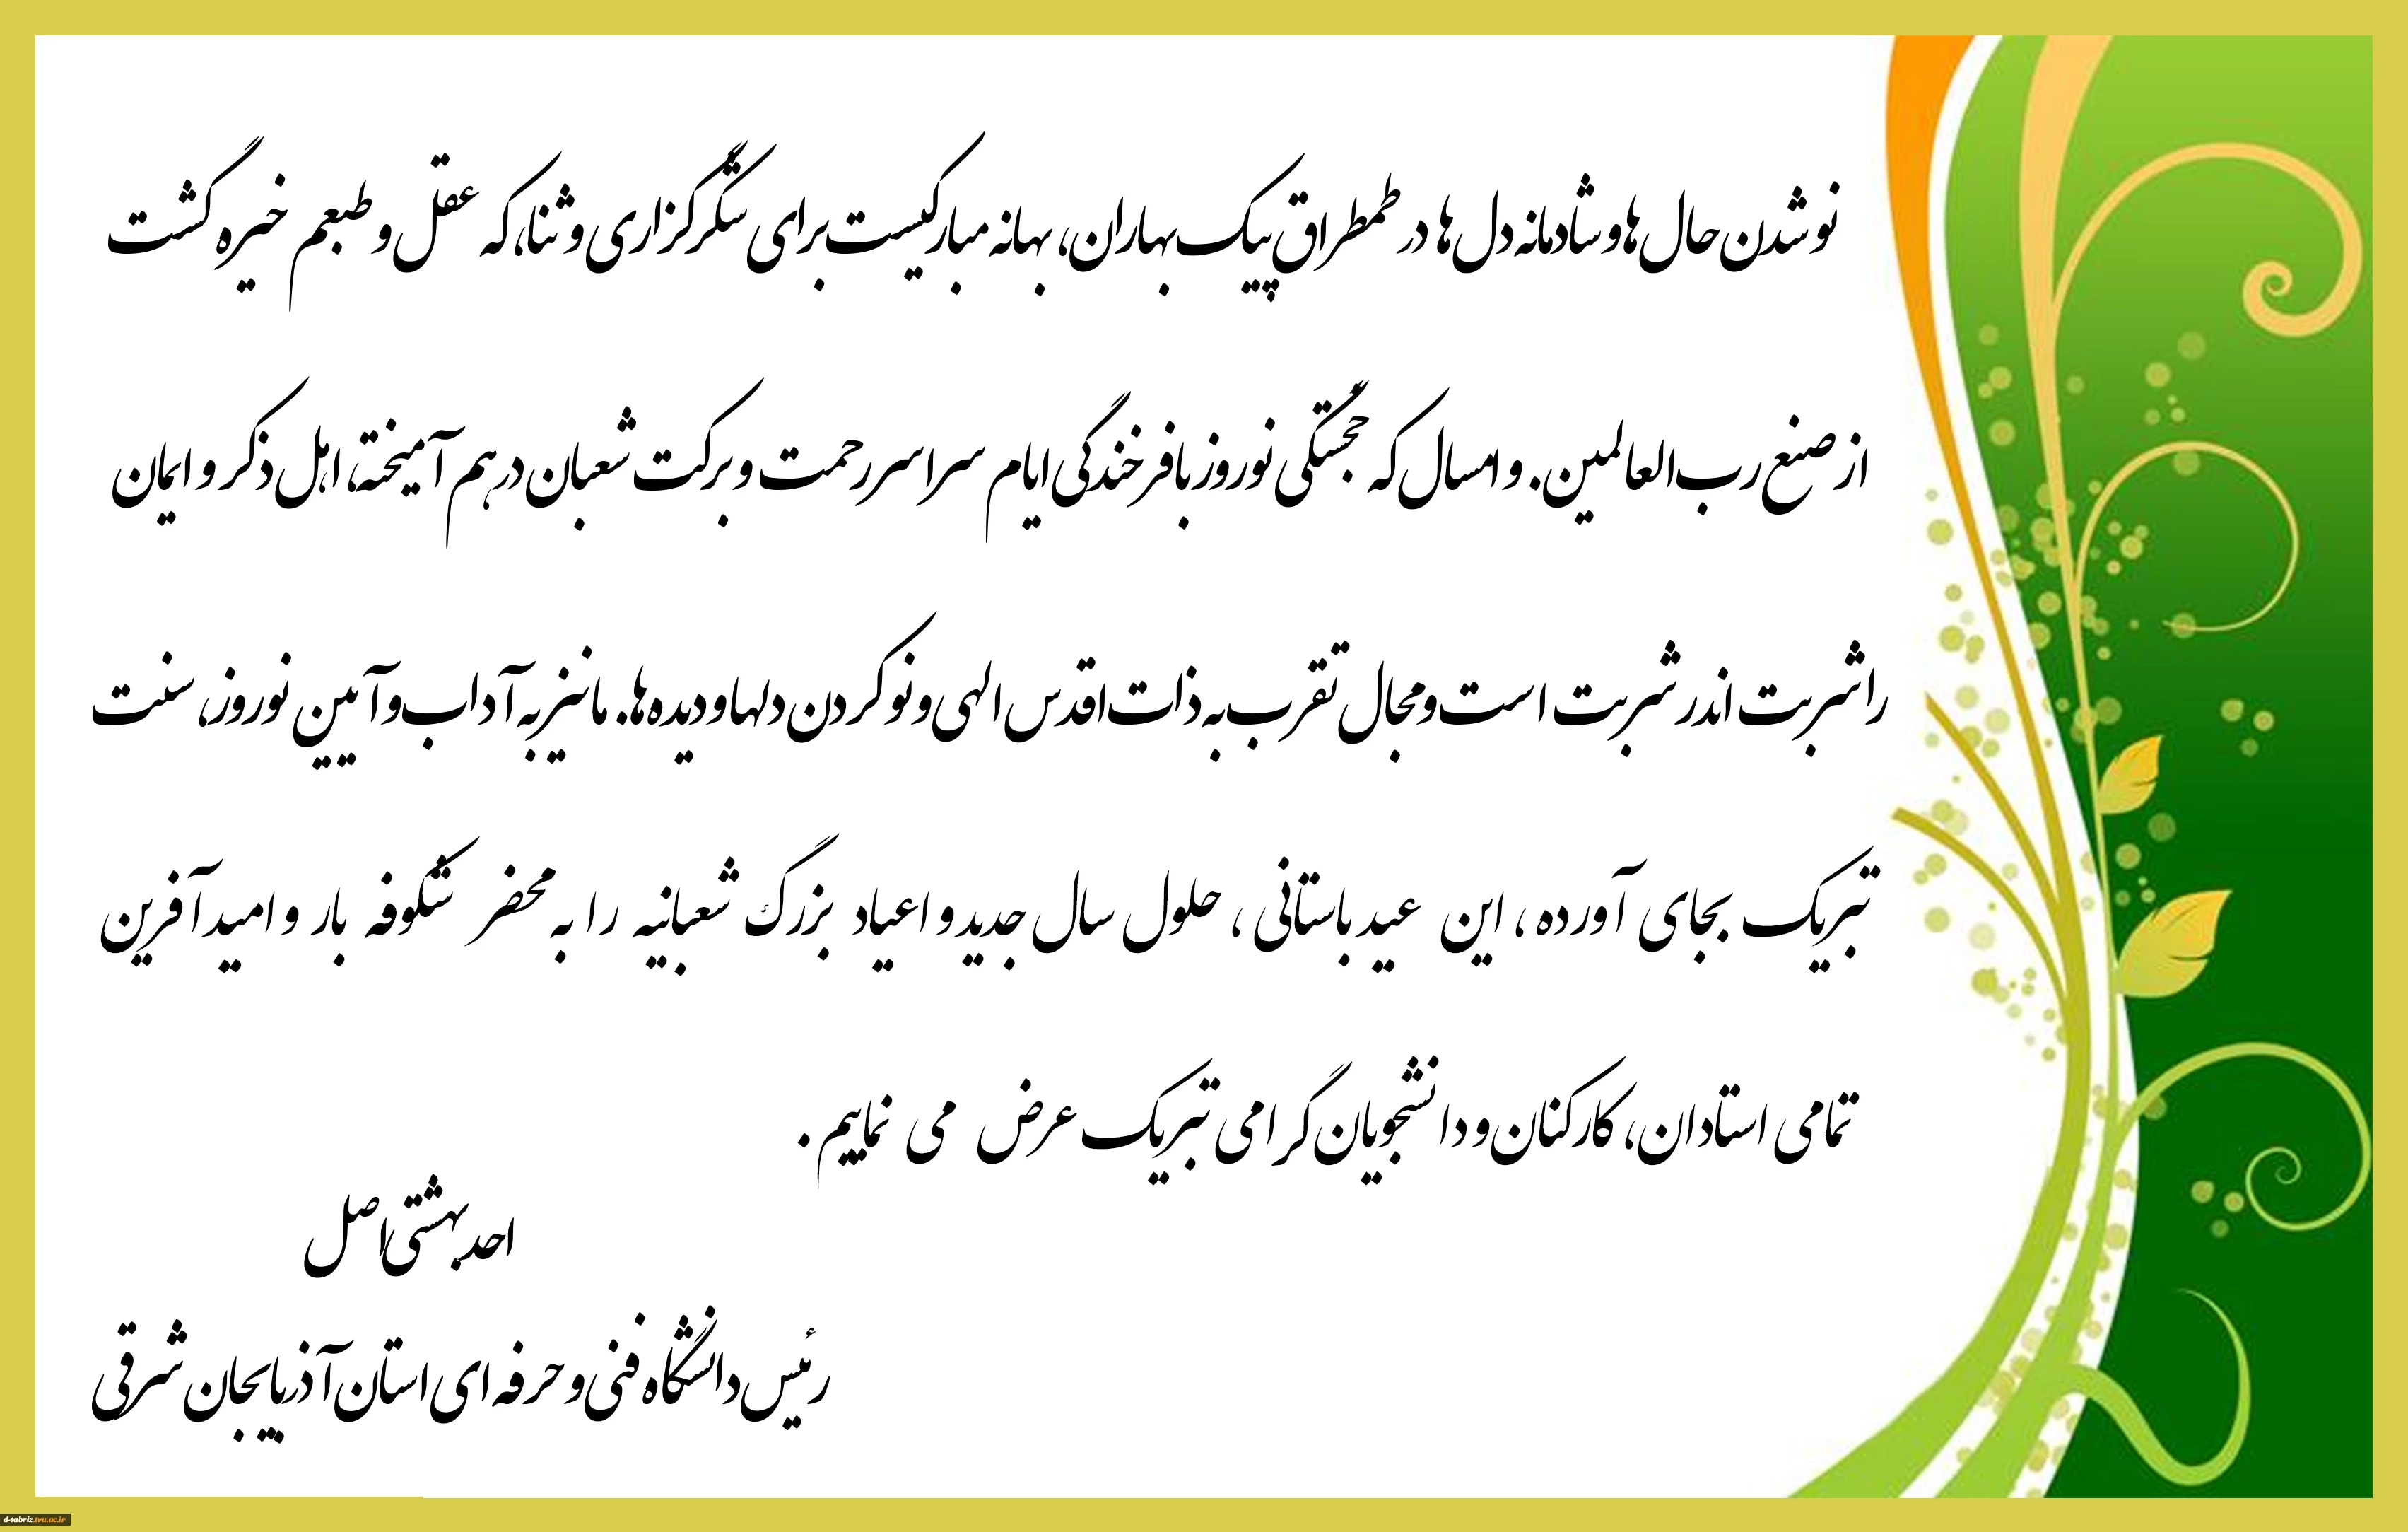 نو شدن حال ها و شادمانه دل ها در طمطراق پیک بهاران، بهانه مبارکیست برای شکرگزاری و ثنا، که عقل و طبعم خیره گشت
از صنع رب العالمین. و امسال که خجستگی نوروز با فرخندگی ایام سراسر رحمت و برکت شعبان در هم آمیخته، اهل ذکر و ایمان
را شربت اندر شربت است و مجال تقرب به ذات اقدس الهی و نو کردن دلها و دیده ها. ما نیز به آداب و آیین نوروز، سنت
تبریک بجای آورده ، این عید باستانی ، حلول سال جدید و اعیاد بزرگ شعبانیه را به محضر شکوفه بار و امید آفرین
تمامی استادان، کارکنان و دانشجویان گرامی تبریک عرض می نماییم .
احد بهشتی اصل
رئیس دانشگاه فنی و حرفه ای استان آذربایجان شرقی
d-tabriz.tvu.ac.ir